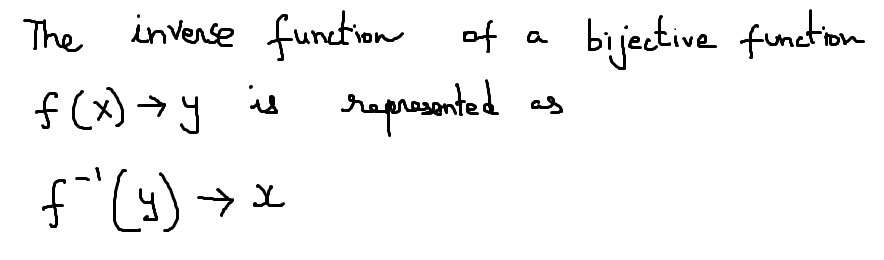 The inverse function of a bijective function
f(x) → y is represented as
f⁻¹(y) → x